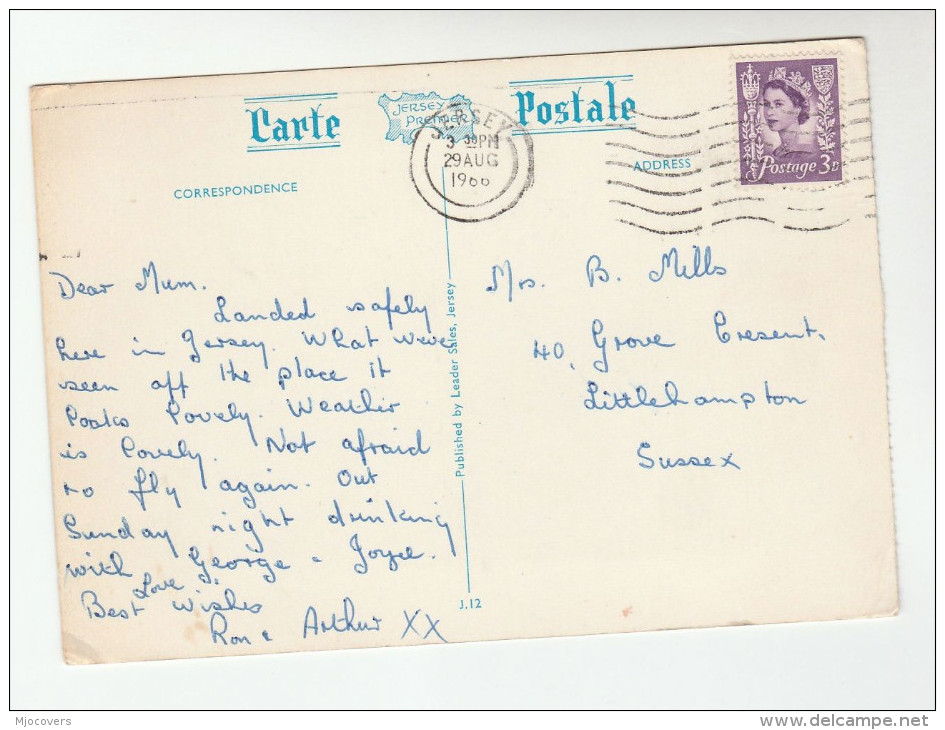 Carte
JERSEY
PREMIER
Postale
JERSEY
3 30 PM
29 AUG
1966
Postage 3D
CORRESPONDENCE
ADDRESS
Dear Mum.
Landed safely
here in Jersey. What we've
seen off the place it
looks lovely. Weather
is lovely. Not afraid
to fly again. Out
Sunday night drinking
with George & Joyce.
Love
Best Wishes
Ron & Arthur XX
Published by Leader Sales, Jersey
J.12
Mrs. B. Mills
40, Grove Cresent,
Littlehampton
Sussex
Mjocovers
www.delcampe.net